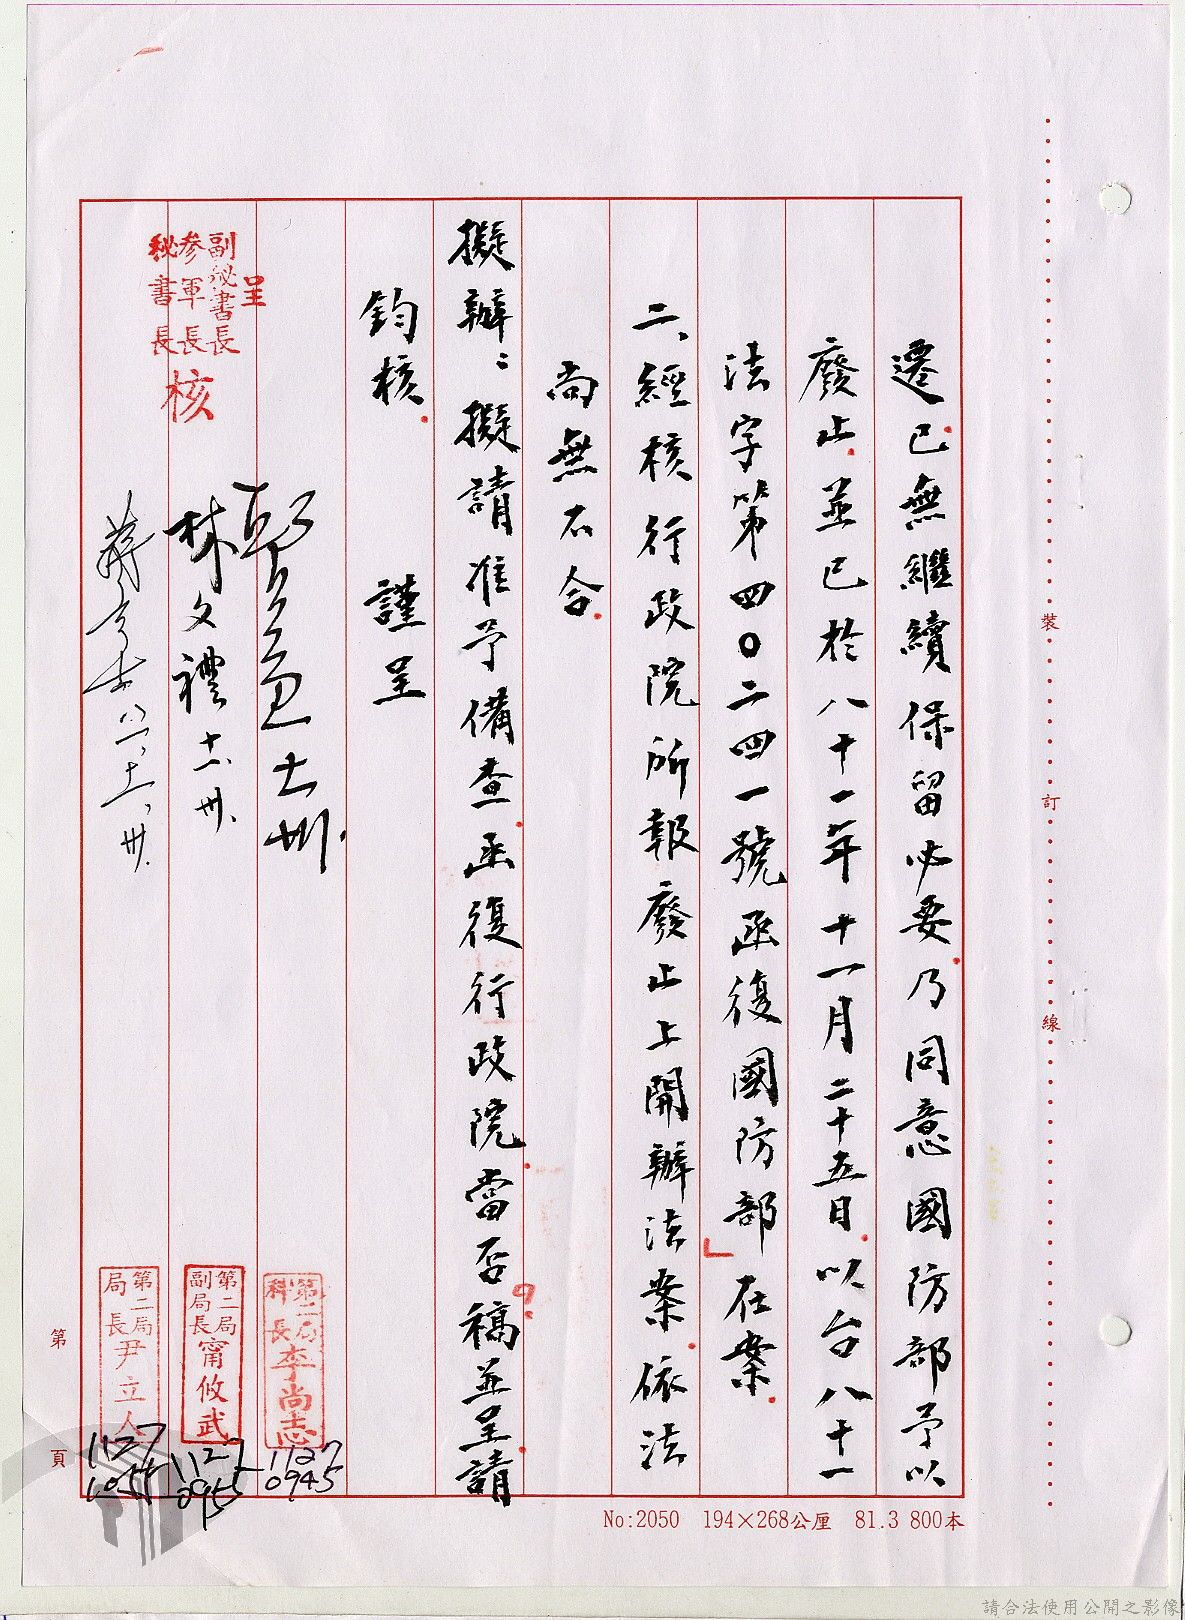 遷已無繼續保留必要乃同意國防部予以
廢止並已於八十一年十一月二十五日以台八十一
法字第四〇二四一號函復國防部」在案
二、經核行政院所報廢止上開辦法案依法
尚無不合
擬辦：擬請准予備查函復行政院當否稿並呈請
鈞核
謹呈
呈
副秘書長
參軍長
秘書長
核
林文禮
第二局
科長李尚志
1127
0945
第二局
副局長甯攸武
1127
0955
第二局
局長尹立人
1127
1055
裝
訂
線
第
頁
No:2050 194×268公厘 81.3 800本
請合法使用公開之影像